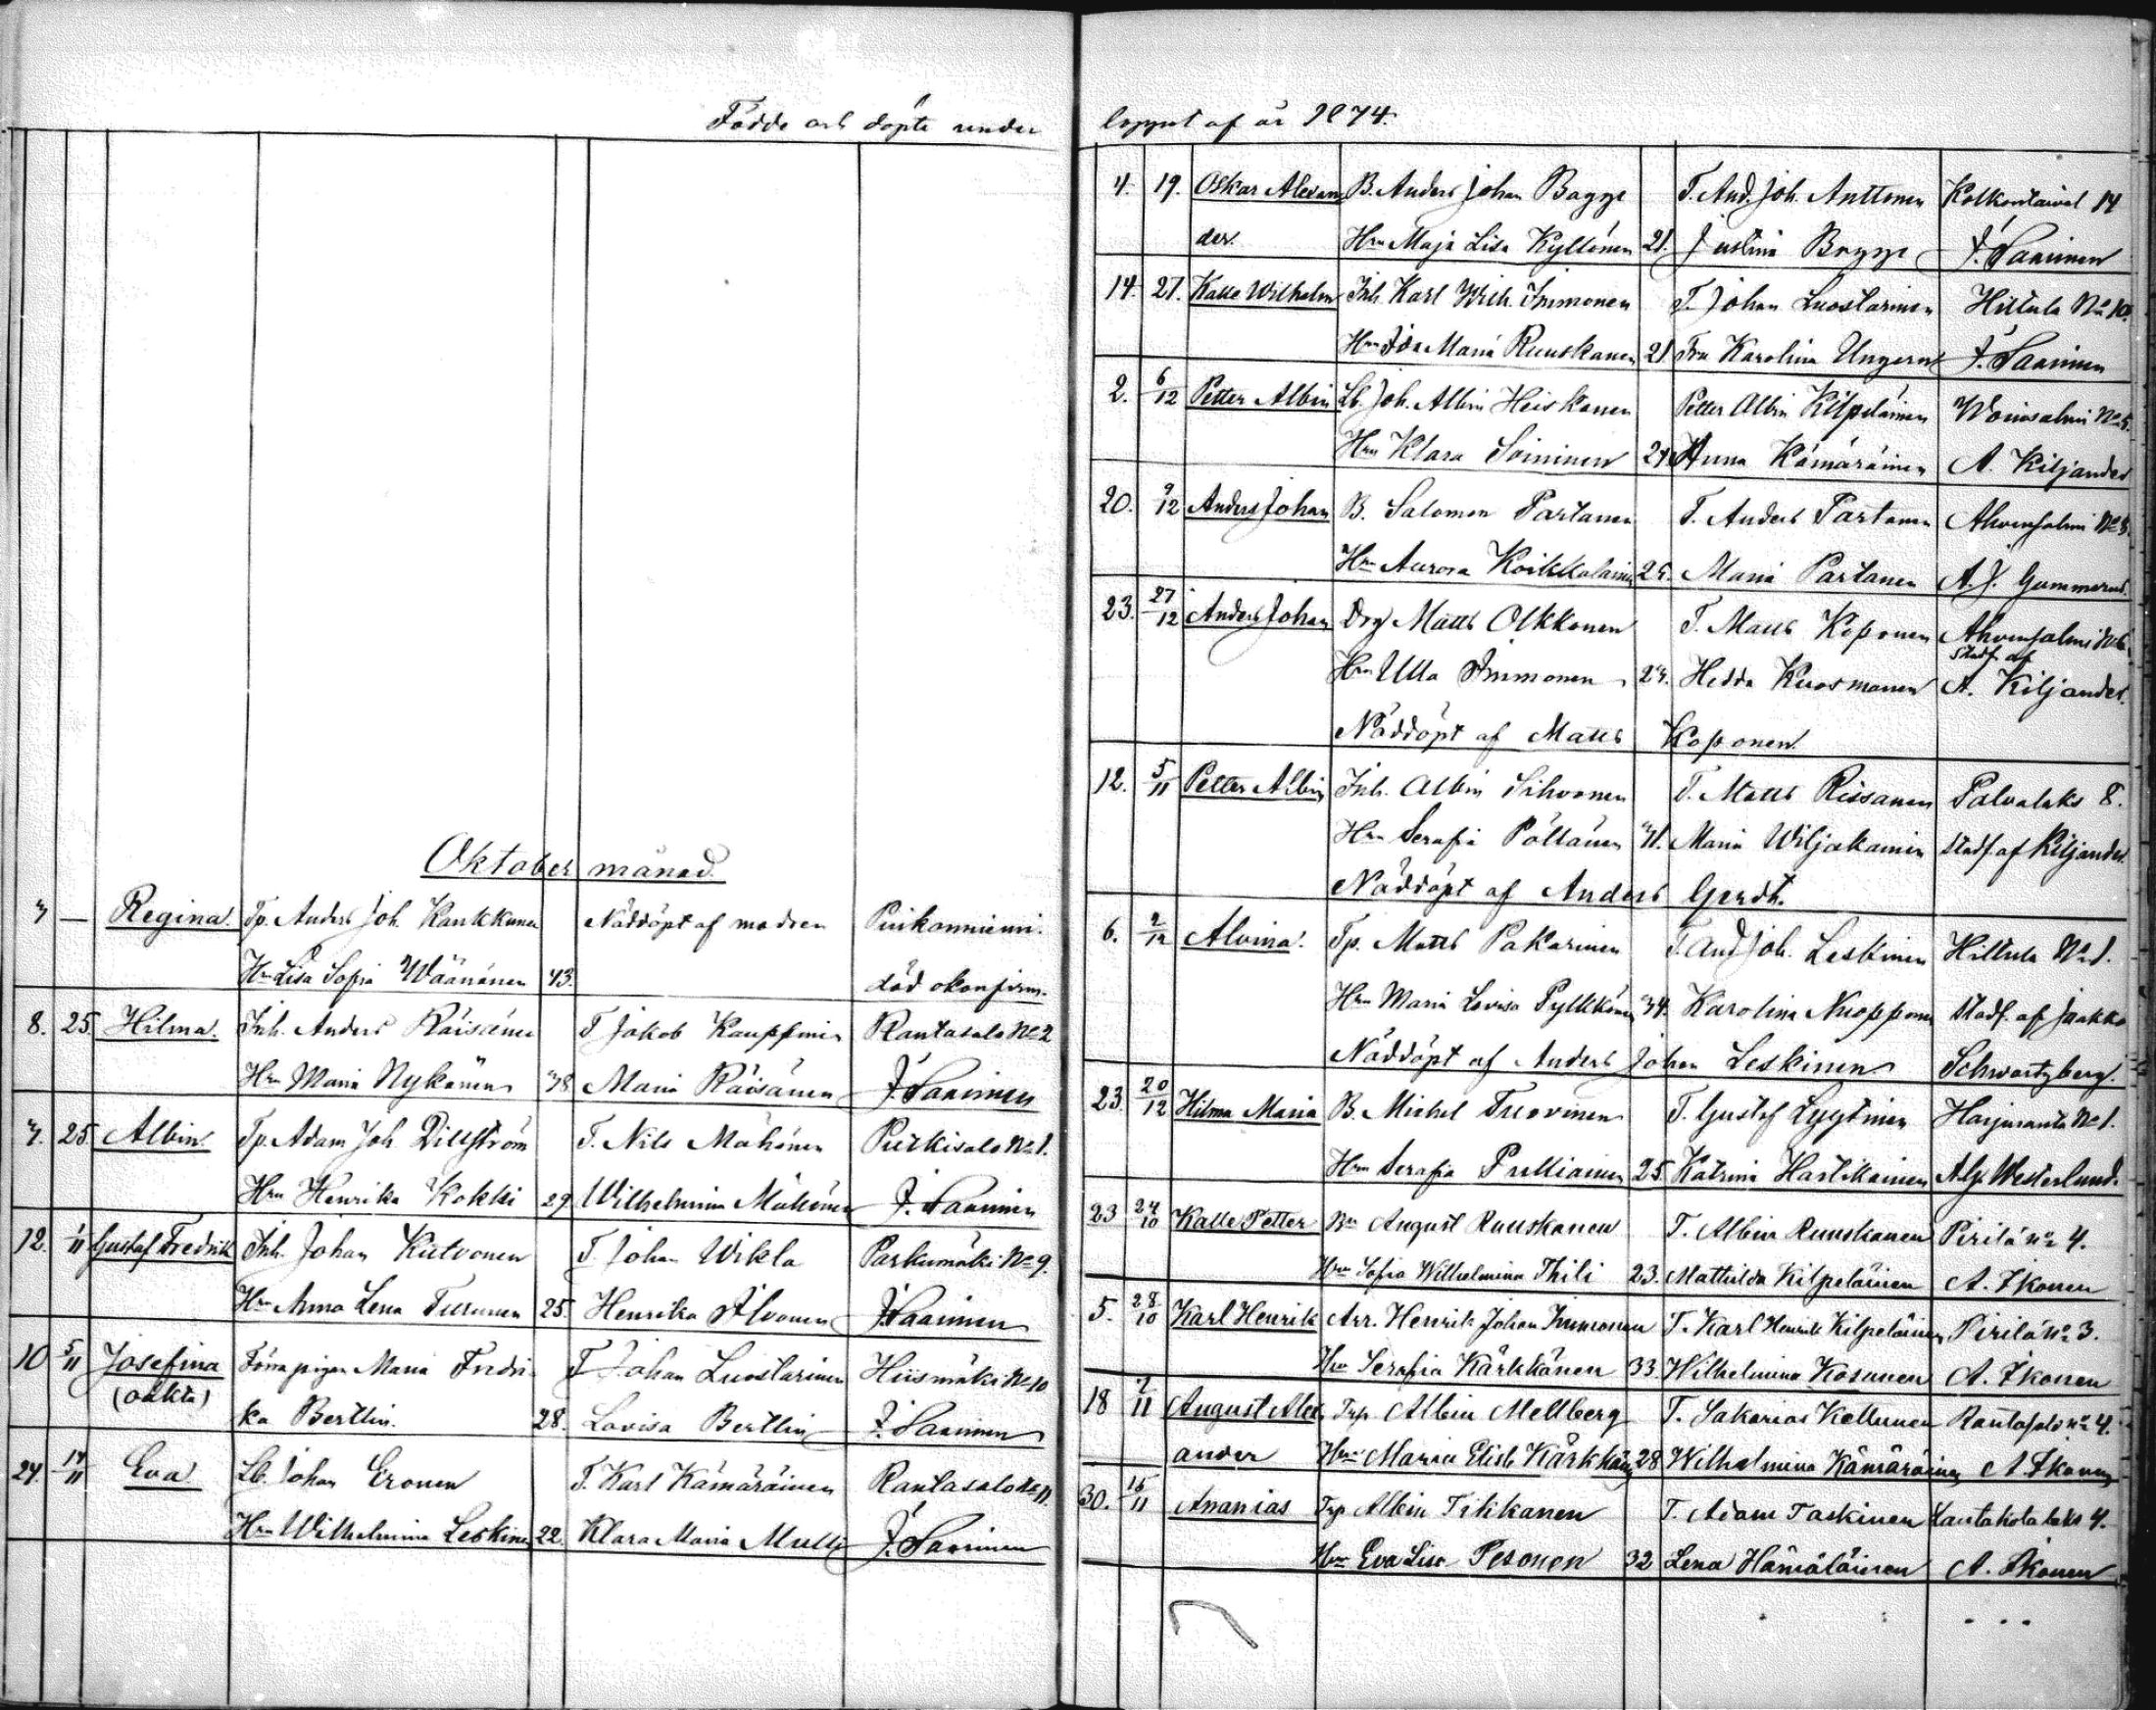 Födde och döpte under loppet af år 1874.
Oktober månad.
7 — Regina. Tp. Anders Joh. Kaukkunen Nöddöpt af modren Piikonniemi.
Hru Lisa Sofia Wäänänen 43. död okonfirm.
8. 25. Hilma. Inh. Anders Räisänen T. Jakob Kauppinen Rantasalo No 2
Hru Maria Nykänen 38 Maria Räisänen J. Saarinen
7. 25 Albin Tp. Adam Joh. Dillström T. Nils Mähönen Putkisalo No 1.
Hru Henrika Kokki 29 Wilhelmina Mähönen J. Saarinen
12. 1/11 Gustaf Fredrik Inh. Johan Kutvonen T. Johan Wikla Parkumäki No 9.
Hru Anna Lena Turunen 25. Henrika Ilvonen J. Saarinen
10 5/11 Josefina Förra pigan Maria Fredri- T. Johan Luostarinen Hiismäki No 10
(oäkta) ka Bertlin. 28. Lovisa Bertlin J. Saarinen
24. 14/11 Eva Lb. Johan Eronen T. Karl Kämäräinen Rantasalo No 11.
Hru Wilhelmina Leskinen 22. Klara Maria Mulli J. Saarinen
4. 19. Oskar Alexan- B. Anders Johan Bagge T. And. Joh. Anttonen Kolkontaival 14
der. Hru Maja Lisa Kyllönen 21. Justina Bagge J. Saarinen
14. 27. Kalle Wilhelm Inh. Karl Wilh. Immonen T. Johan Luostarinen Hiltula No 10.
Hru Ida Maria Ruuskanen 21. Fru Karolina Ungern J. Saarinen
2. 6/12 Petter Albin Lb. Joh. Albin Heiskanen Petter Albin Kilpeläinen Woinsalmi No 5.
Hru Klara Soininen 24. Anna Kämäräinen A. Kiljander
20. 9/12 Anders Johan B. Salomon Partanen T. Anders Partanen Ahvensalmi No 8.
Hru Aurora Koikkalainen 25. Maria Partanen A. J. Gummerus.
23. 27/12 Anders Johan Drg Matts Olkkonen T. Matts Koponen Ahvensalmi No 6.
Hru Ulla Immonen 27. Hedda Kuosmanen Stadf. af A. Kiljander.
Nöddöpt af Matts Koponen.
12. 5/11 Petter Albin Inh. Albin Sihvonen T. Matts Rissanen Palvalaks 8.
Hru Serafia Pöllänen 31. Maria Wiljakainen Stadf. af Kiljander.
Nöddöpt af Anders Gerdt.
6. 2/12 Alvina. Tp. Matts Pakarinen T. And Joh. Leskinen Hiltula No 1.
Hru Maria Lovisa Pylkkönen 34. Karolina Nuopponen Stadf. af Jaakko
Nöddöpt af Anders Johan Leskinen Schwartzberg.
23. 20/12 Hilma Maria B. Michel Tuovinen T. Gustaf Lyytinen Harjuranta No 1.
Hru Serafia Pulliainen 25. Katrina Hartikainen Alf. Westerlund.
23 24/10 Kalle Petter Bn August Ruuskanen T. Albin Ruuskanen Pirilä No 4.
Hru Sofia Wilhelmina Thili 23. Mathilda Kilpeläinen A. Ikonen
5. 28/10 Karl Henrik Arr. Henrik Johan Immonen T. Karl Henrik Kilpeläinen Pirilä No 3.
Hru Serafia Kärkkänen 33. Wilhelmina Kosunen A. Ikonen
18 7/11 August Alex- Trp. Albin Mellberg T. Sakarias Kellunen Rantasalo No 4.
ander Hru Maria Elisb Kärkkänen 28 Wilhelmina Kämäräinen A Ikonen
30. 15/11 Ananias Trp Albin Tikkanen T. Adam Taskinen Lautakotalaks 4.
Hru Eva Lisa Pesonen 32 Lena Hämäläinen A. Ikonen